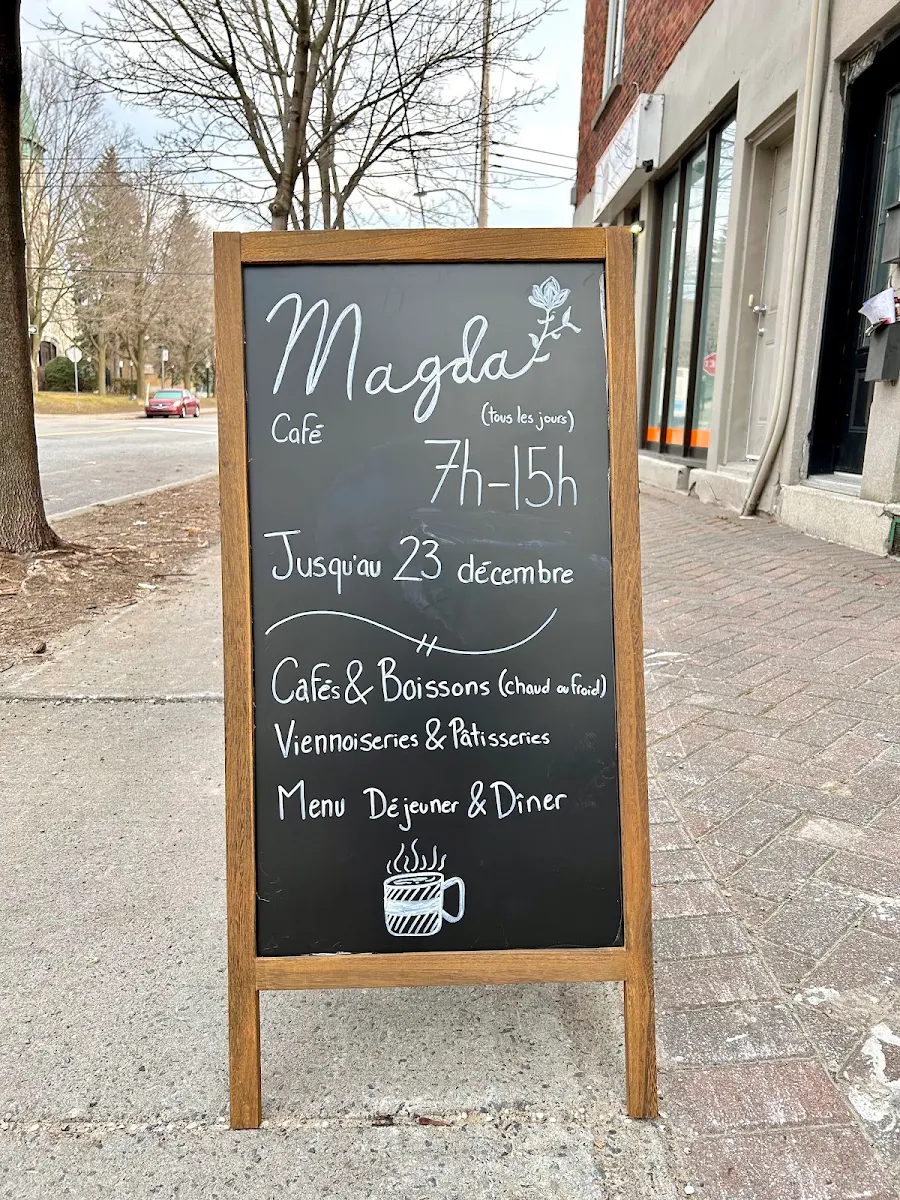 Magda
Café
(tous les jours)
7h-15h
Jusqu'au 23 décembre
Cafés & Boissons (chaud ou froid)
Viennoiseries & Pâtisseries
Menu Déjeuner & Dîner